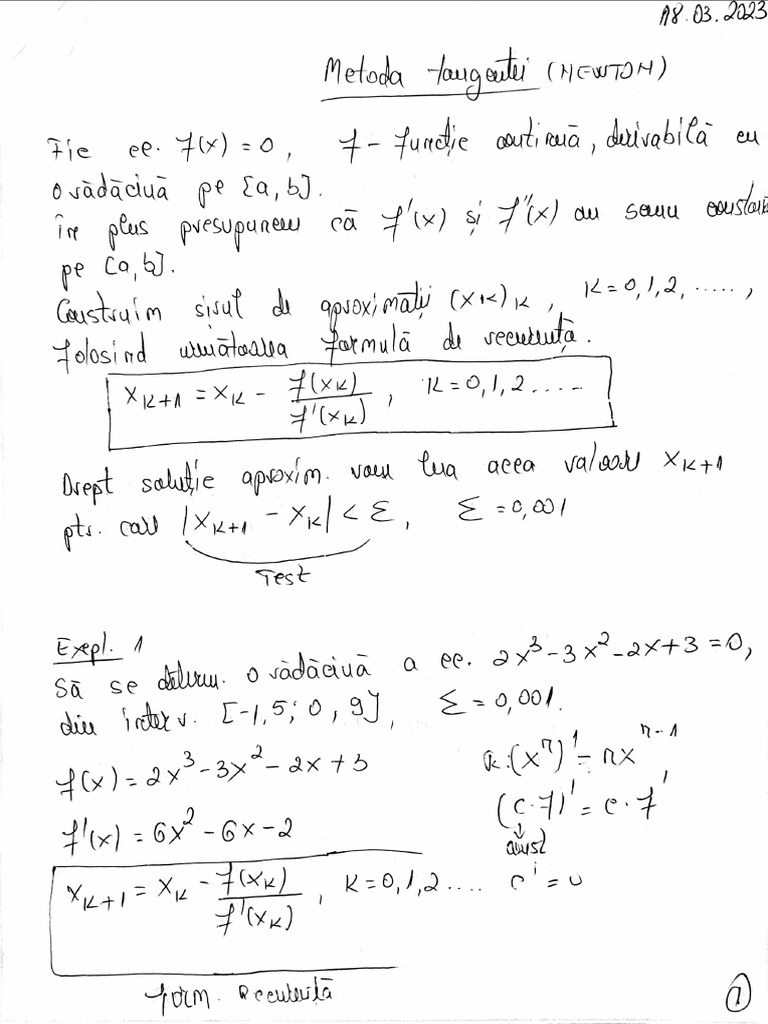 18.03.2023
Metoda tangentei (NEWTON)
Fie ec. f(x) = 0, f - funcție continuă, derivabilă cu
o rădăcină pe [a, b].
în plus presupunem că f'(x) și f''(x) au semn constant
pe [a, b].
Construim șirul de aproximații (xk)k, k = 0, 1, 2, .....,
folosind următoarea formulă de recurență.
xk+1 = xk - f(xk)/f'(xk), k = 0, 1, 2 .....
Drept soluție aproxim. vom lua acea valoare xk+1
ptr. care |xk+1 - xk| < ε, ε = 0,001
Test
Exepl. 1
Să se determ. o rădăcină a ec. 2x³ - 3x² - 2x + 3 = 0,
din interv. [-1,5; 0,9], ε = 0,001.
f(x) = 2x³ - 3x² - 2x + 3
R: (xⁿ)' = nxⁿ⁻¹
f'(x) = 6x² - 6x - 2
(c·f)' = c·f'
↓
const
xk+1 = xk - f(xk)/f'(xk), k = 0, 1, 2 ....
c' = 0
form. Recurență
1